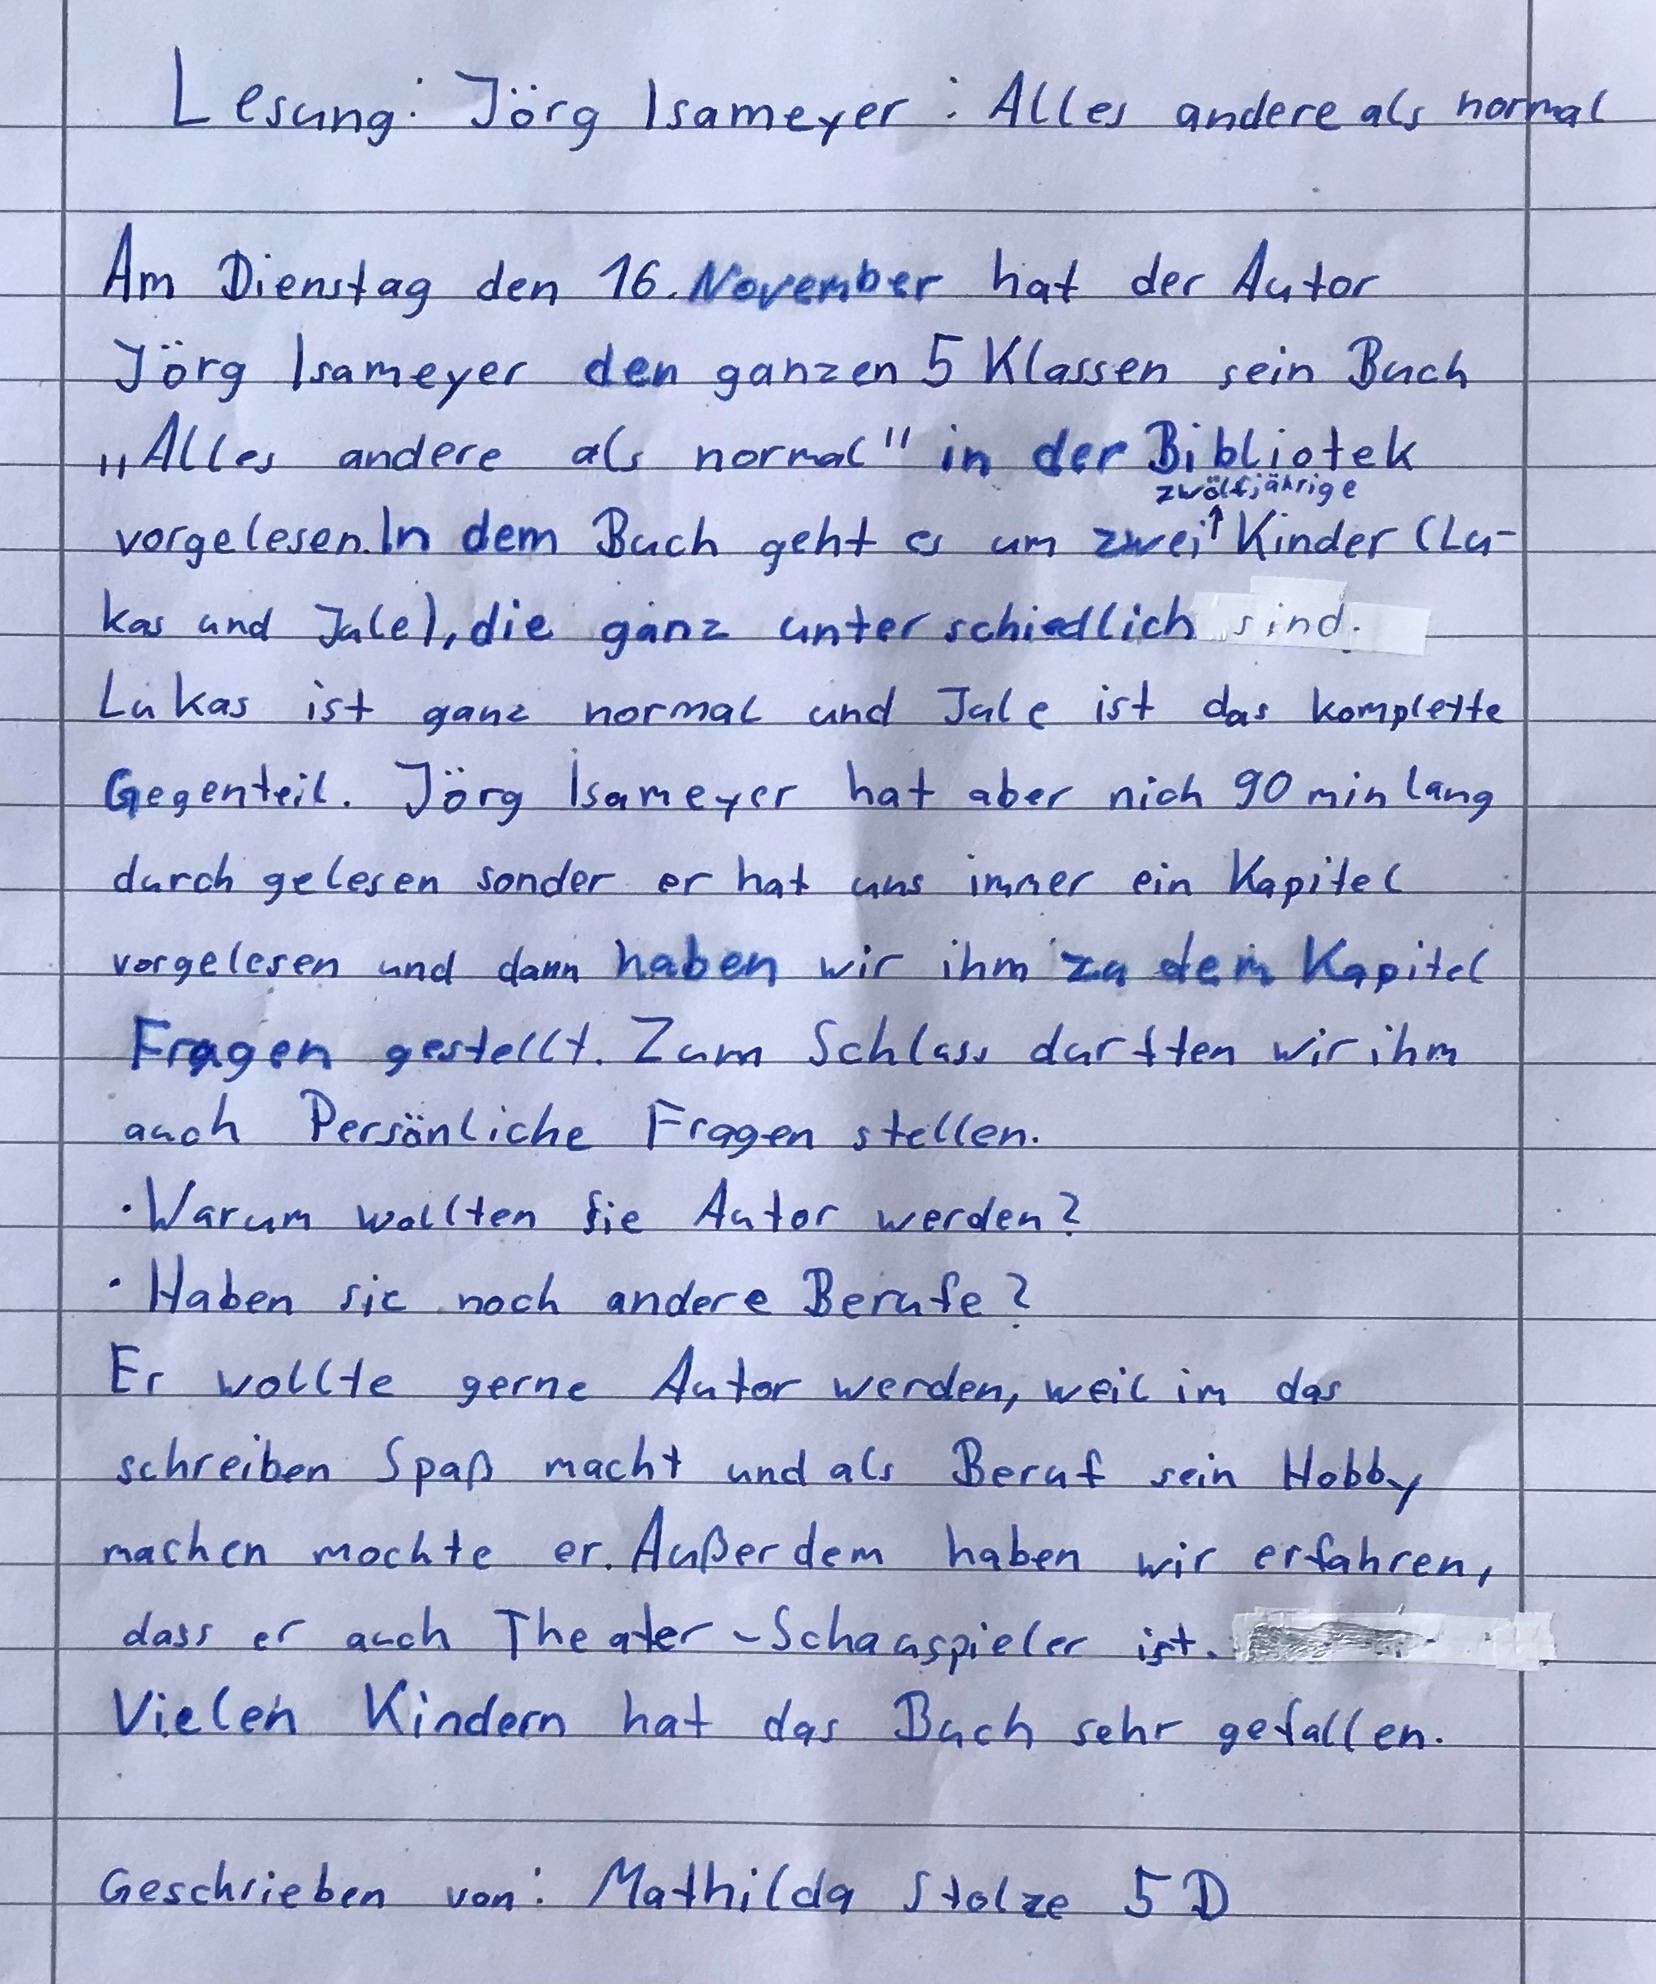 Lesung: Jörg Isameyer: Alles andere als normal
Am Dienstag den 16. November hat der Autor
Jörg Isameyer den ganzen 5 Klassen sein Buch
„Alles andere als normal" in der Bibliotek
zwölfjährige
vorgelesen. In dem Buch geht es um zwei↑ Kinder (Lu-
kas und Jale), die ganz unterschiedlich sind.
Lukas ist ganz normal und Jale ist das komplette
Gegenteil. Jörg Isameyer hat aber nich 90 min lang
durch gelesen sonder er hat uns immer ein Kapitel
vorgelesen und dann haben wir ihm zu dem Kapitel
Fragen gestellt. Zum Schluss durften wir ihm
auch Persönliche Fragen stellen.
· Warum wollten Sie Autor werden?
· Haben sie noch andere Berufe?
Er wollte gerne Autor werden, weil im das
schreiben Spaß macht und als Beruf sein Hobby
machen mochte er. Außerdem haben wir erfahren,
dass er auch Theater-Schauspieler ist.
Vielen Kindern hat das Buch sehr gefallen.
Geschrieben von: Mathilda Stolze 5D